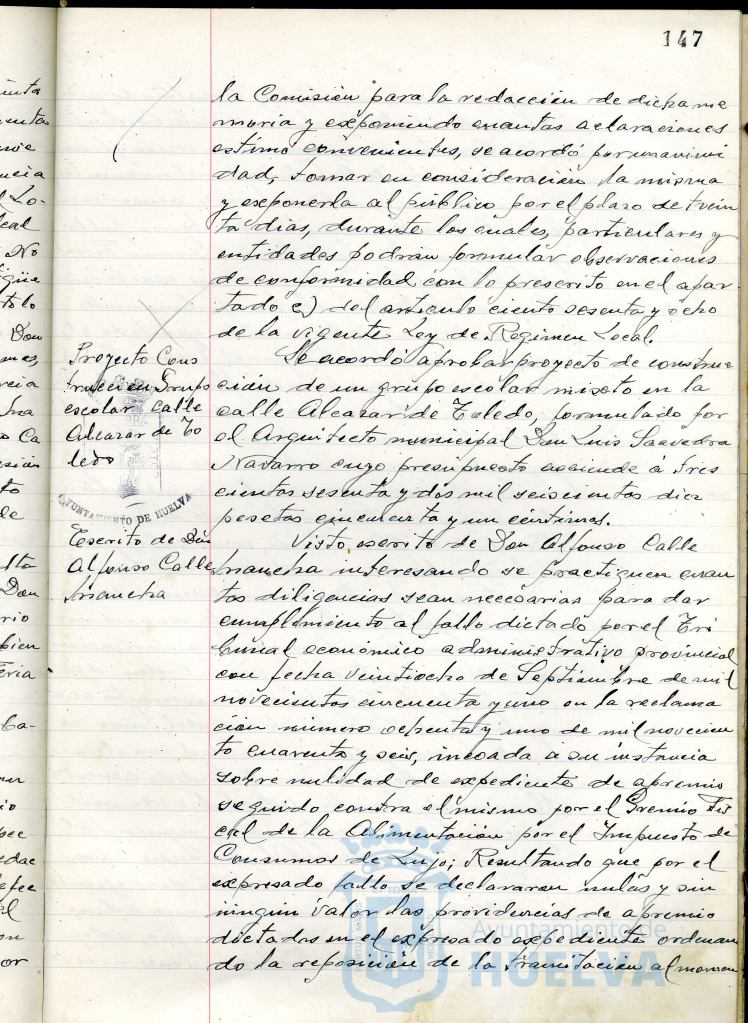 147
la Comisión para la redacción de dicha me
moria y exponiendo cuantas aclaraciones
estimó convenientes, se acordó por unanimi
dad, tomar en consideración la misma
y exponerla al público por el plazo de trein
ta dias, durante los cuales, particulares y
entidades podrán formular observaciones
de conformidad con lo prescrito en el apar
tado c) del articulo ciento sesenta y ocho
de la vigente Ley de Regimen Local.
Proyecto Cons
trucción Grupo
escolar calle
Alcazar de To
ledo
Se acordó aprobar proyecto de construc
ción de un grupo escolar mixto en la
calle Alcazar de Toledo, formulado por
el Arquitecto municipal Don Luis Saavedra
Navarro cuyo presupuesto asciende á tres
cientas sesenta y dos mil seiscientas diez
pesetas cincuenta y un céntimos.
AYUNTAMIENTO DE HUELVA
Escrito de Don
Alfonso Calle
Mancha
Visto escrito de Don Alfonso Calle
Mancha interesando se practiquen cuan
tas diligencias sean necesarias para dar
cumplimiento al fallo dictado por el Tri
bunal económico administrativo provincial
con fecha veintiocho de Septiembre de mil
novecientos cincuenta y uno en la reclama
ción número ochenta y uno de mil novecien
to cuarenta y seis, incoada a su instancia
sobre nulidad de expediente de apremio
seguido contra el mismo por el Gremio Fis
cal de la Alimentación por el Impuesto de
Consumos de Lujo; Resultando que por el
expresado fallo se declararon nulas y sin
ningun valor las providencias de apremio
dictadas en el expresado expediente ordenan
do la reposición de la tramitación al momen
Ayuntamiento de
HUELVA